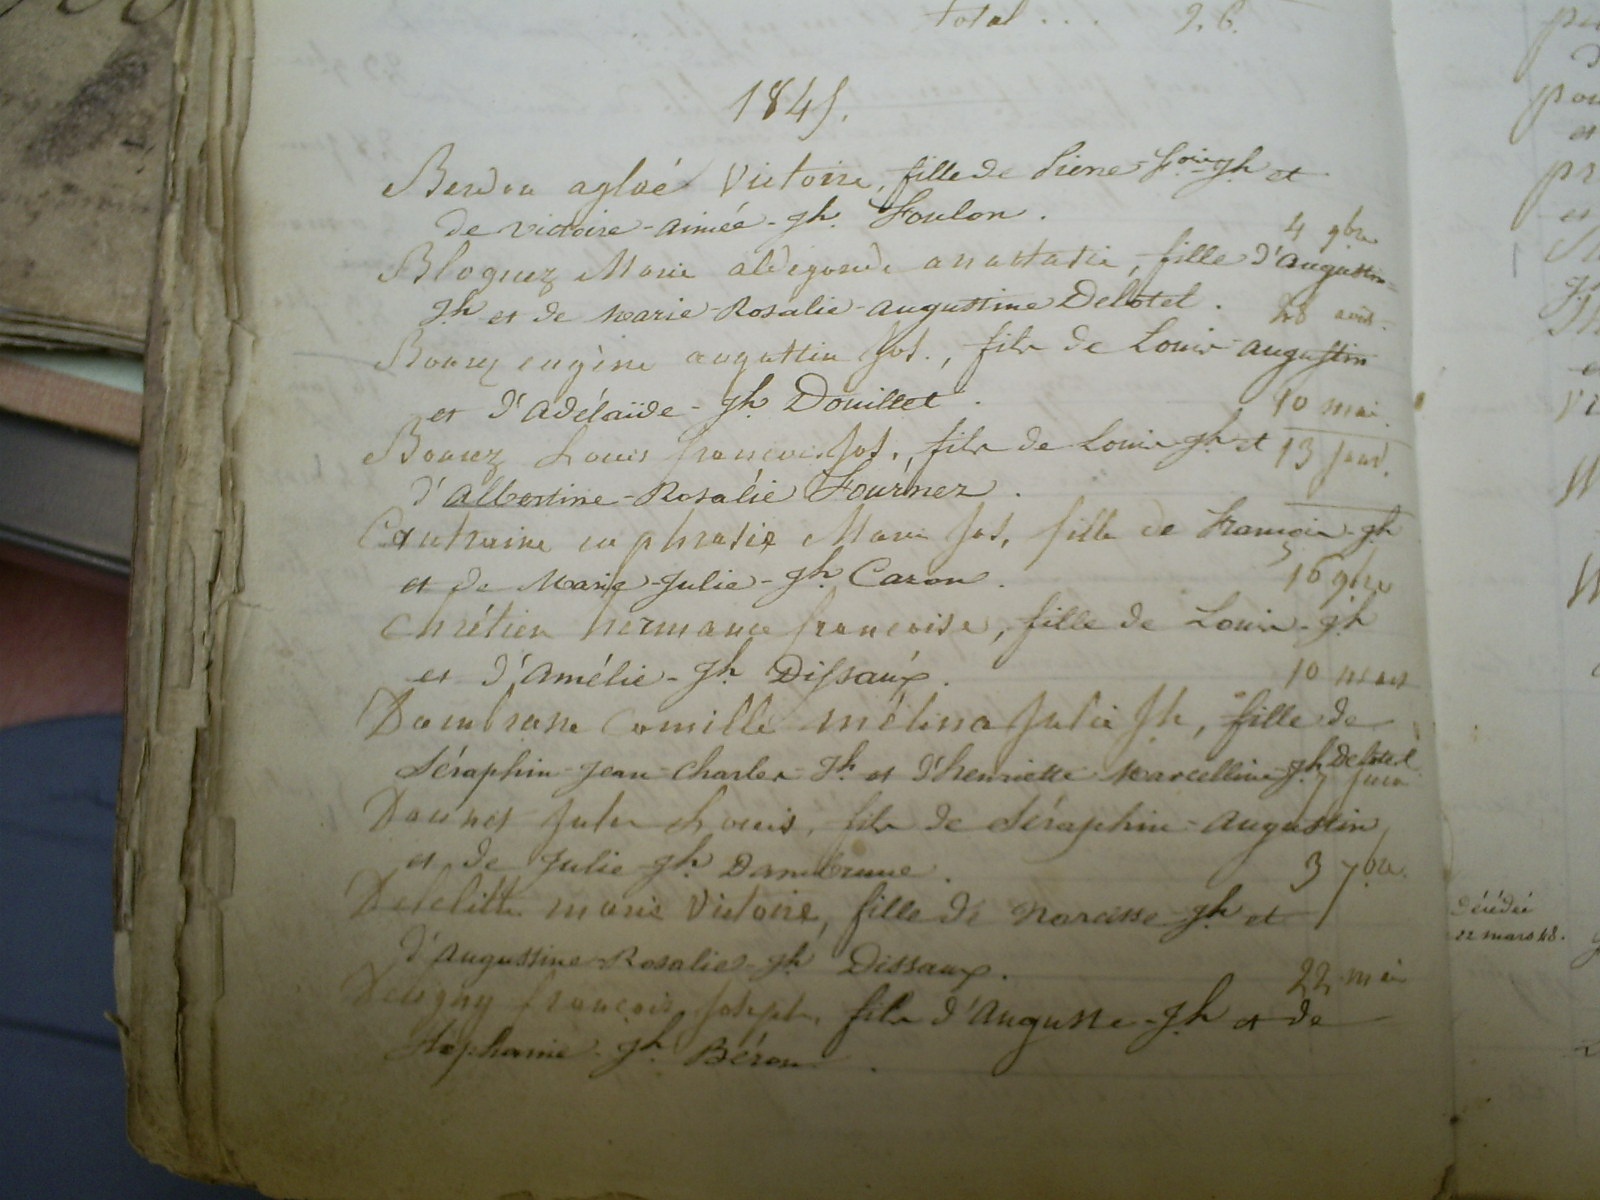 Total . . . 26.
1845.
Berdou aglaé Victoire, fille de Pierre-fois-Jh et
de victoire-aimée-Jh. Foulon.
4 9bre
Bloquez Marie aldegonde anastasie, fille d'augustin-
Jh et de Marie-Rosalie-augustine Delotel.
28 août.
Bourez eugène augustin Jos., fils de Louis augustin
et d'Adélaïde-Jh Douillet.
10 mai.
Bourez Louis françois Jos., fils de Louis-Jh et
13 janv.
d'Albertine-Rosalie Fournez.
Contraine euphrasie Marie Jos, fille de François-Jh
et de Marie-Julie-Jh Caron.
16 9bre
Chrétien hermance françoise, fille de Louis-Jh
et d'Amélie-Jh Dissaux.
10 mars
Dambrune Camille mélina Julie Jh, fille de
Séraphin-Jean-Charles-Jh et d'henriette Marcelline-Jh Delotel.
7 juin
Daunet Jules Louis, fils de Séraphin-Augustin
et de Julie-Jh Dambrune.
3 7bre.
marie Victoire, fille de Narcisse-Jh et
d'Augustine-Rosalie-Jh Dissaux.
22 mai
Deligny françois Joseph, fils d'Auguste-Jh et de
Stéphanie-Jh Béron.
décédée
22 mars 48.